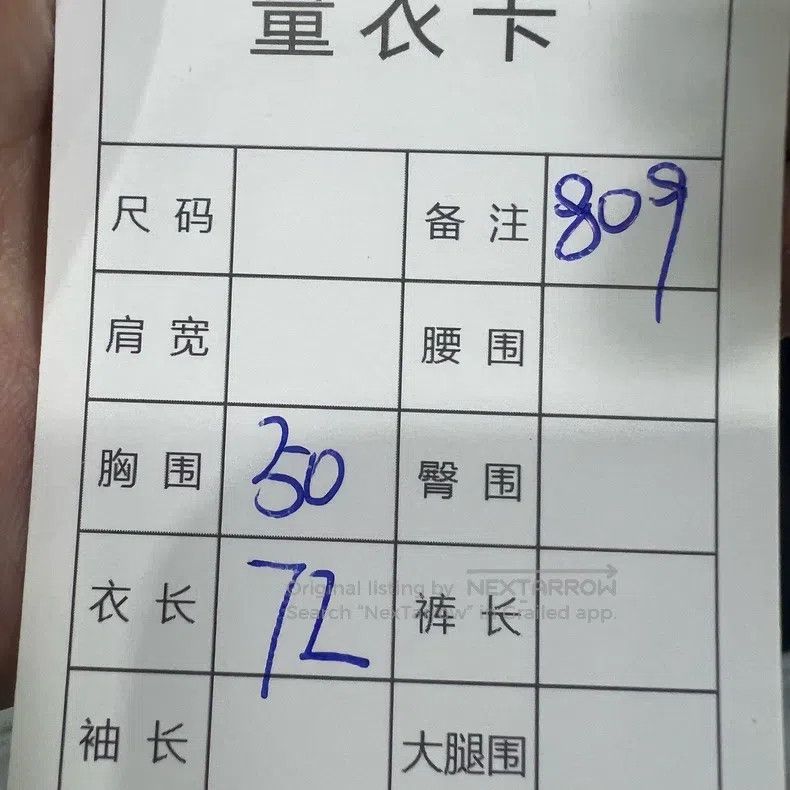 量衣卡
尺码 备注 809
肩宽 腰围
胸围 50 臀围
衣长 72 裤长
Original listing by NEXTARROW
Search "NexTarrow" in Grailed app.
袖长 大腿围